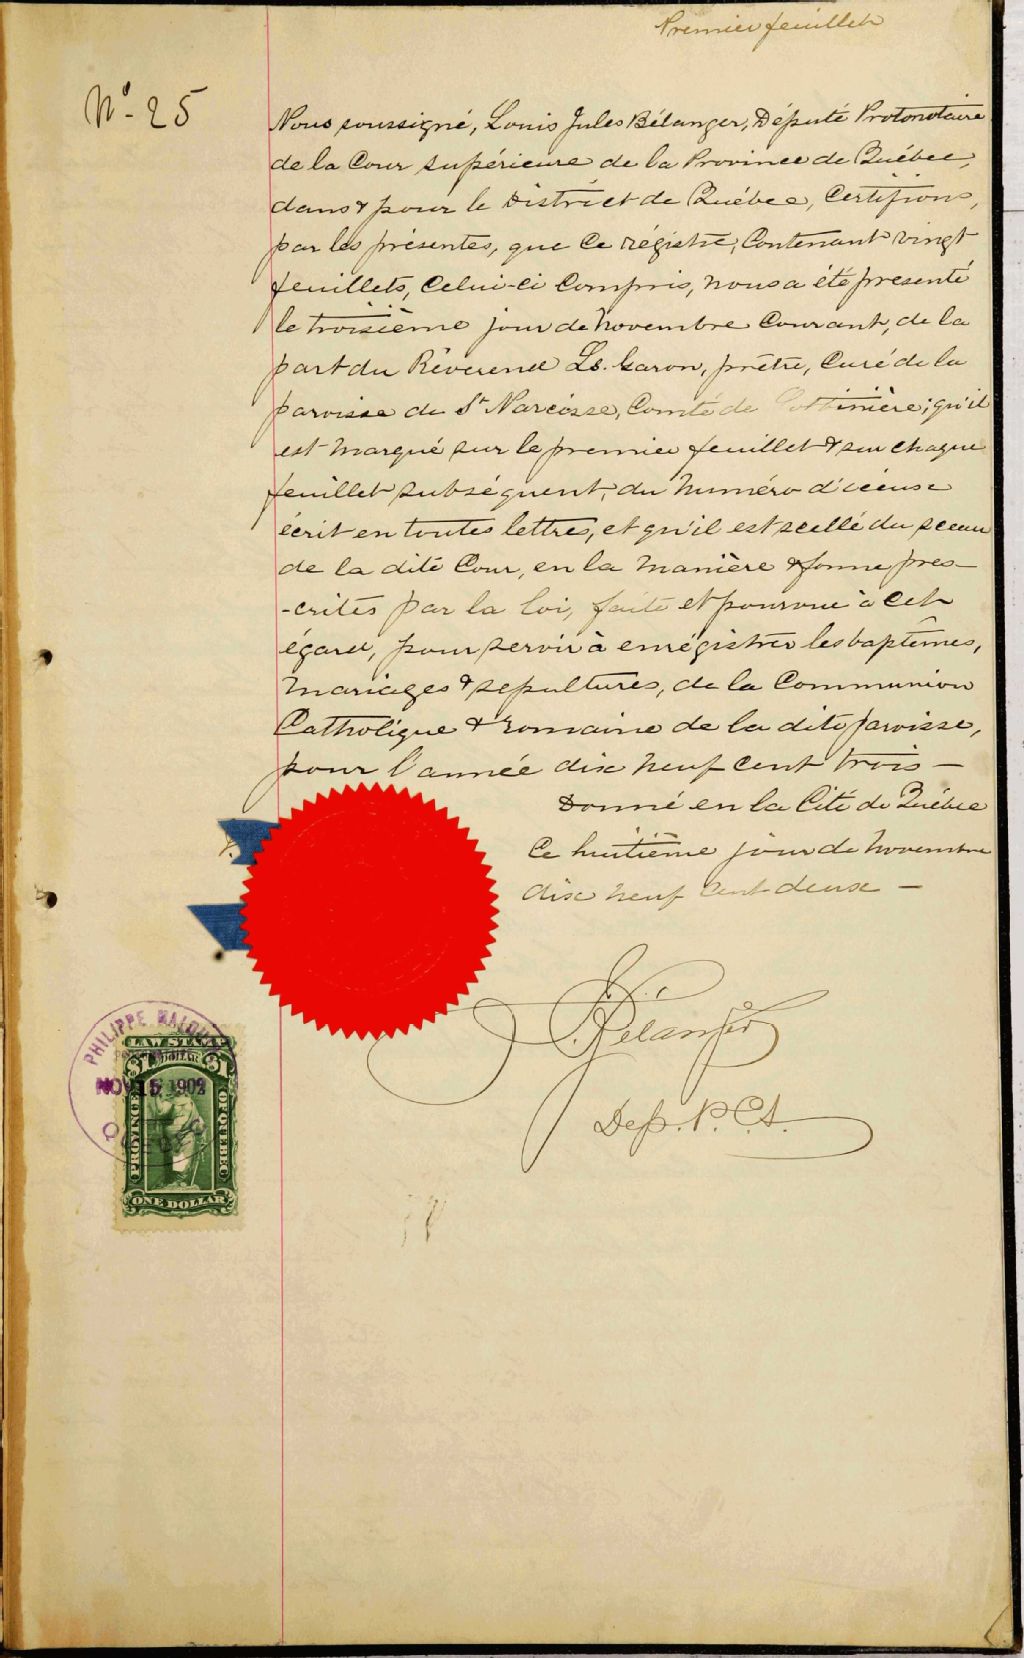 Premier feuillet
No. 25
Nous soussigné, Louis Jules Bélanger, Député Protonotaire
de la Cour supérieure de la Province de Québec,
dans & pour le District de Québec, Certifions,
par les présentes, que ce régistre, Contenant vingt
feuillets, Celui-ci Compris, nous a été présenté
le troisième jour de novembre Courant, de la
part du Réverend Ls. Garon, prêtre, Curé de la
paroisse de St Narcisse, Comté de Lotbinière; qu'il
est marqué sur le premier feuillet & sur chaque
feuillet subséquent, du numéro d'iceux
écrit en toutes lettres, et qu'il est scellé du sceau
de la dite Cour, en la manière & forme pres-
-crites par la loi, faite et pourvue à cet
égard, pour servir à enrégistrer les baptêmes,
mariages & sepultures, de la Communion
Catholique & romaine de la dite paroisse,
pour l'année dix neuf cent trois —
Donné en la Cité de Québec
Ce huitième jour de novembre
dix neuf cent deux —
Bélanger
Dep. P.C.S.
PHILIPPE
LAW STAMP
$1 DOLLAR $1
NOV 15 1902
PROVINCE OF QUEBEC
QUEBEC
ONE DOLLAR